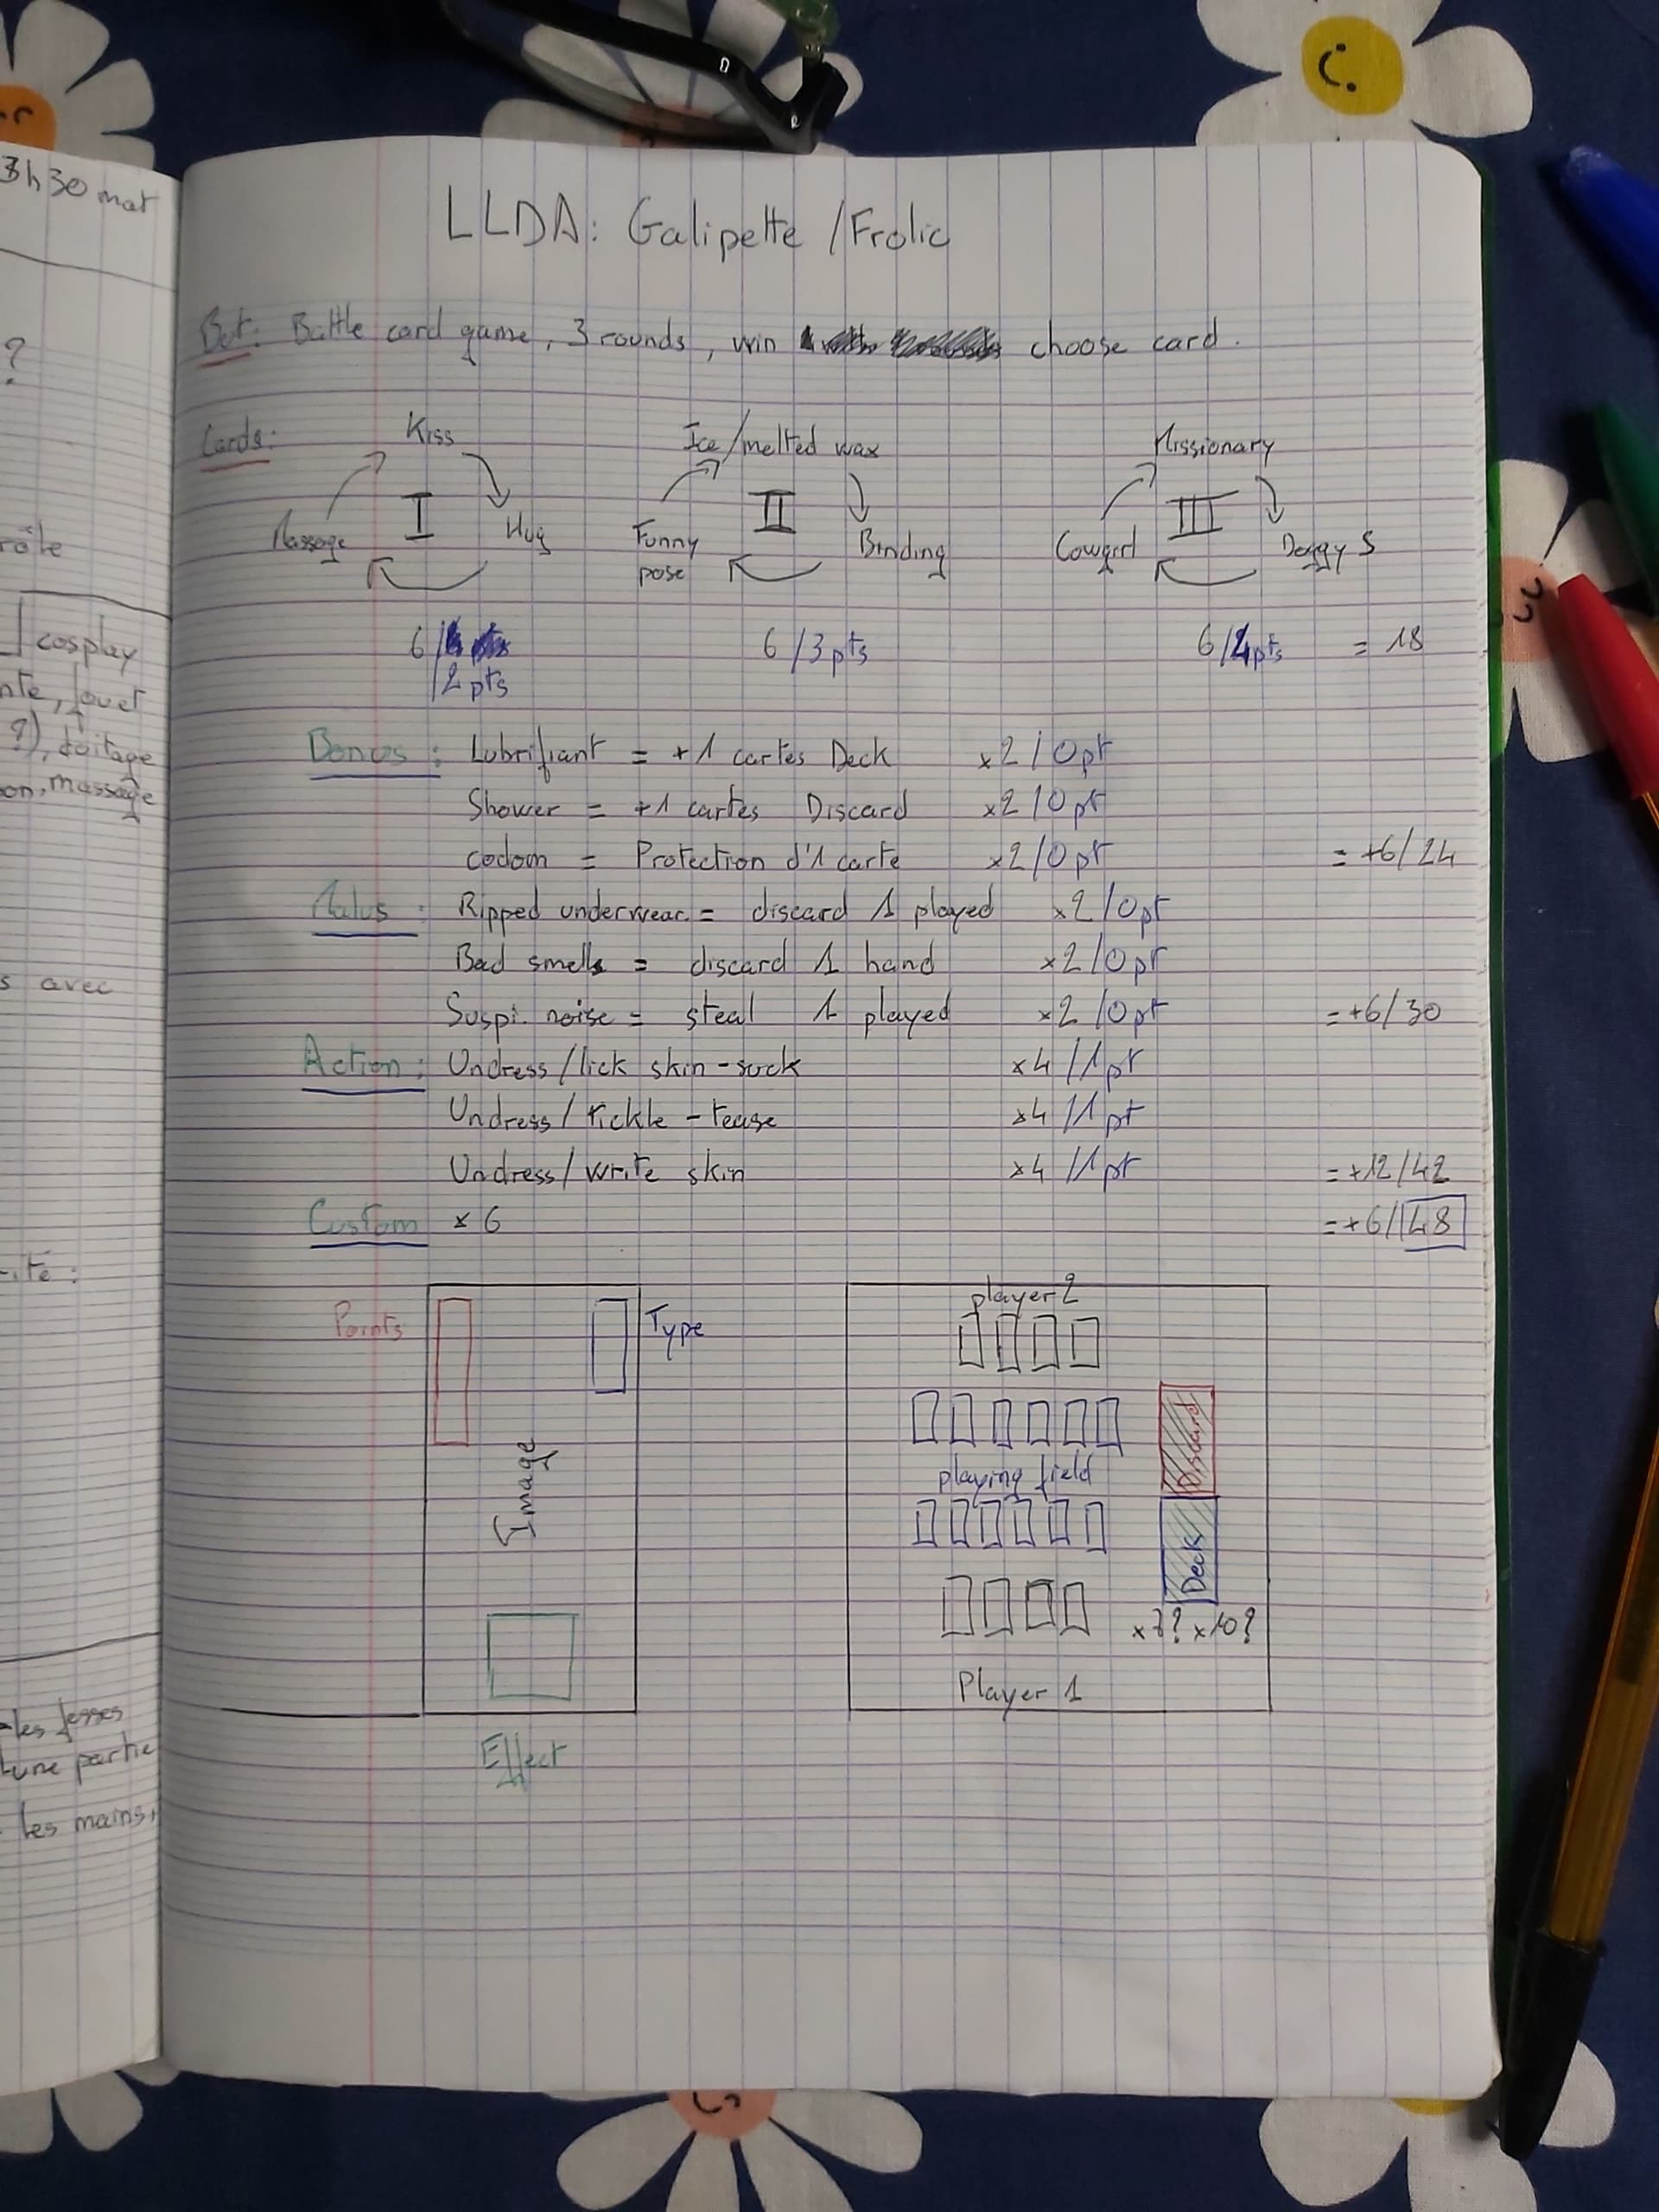 3h30 mat
?
rôle
cosplay
nte, jouet
?), doitage
on, massage
s avec
ite :
les fesses
une partie
les mains,
LLDA: Galipette / Frolic
But: Battle card game, 3 rounds, win choose card.
Cards:
Kiss
I
Massage
Hug
Ice/melted wax
II
Funny pose
Binding
Missionary
III
Cowgirl
Doggy S
6/
2 pts
6/3pts
6/4pts = 18
Bonus : Lubrifiant = +1 cartes Deck x2/0pt
Shower = +1 cartes Discard x2/0pt
codom = Protection d'1 carte x2/0pt = +6/24
Malus : Ripped underwear = discard 1 played x2/0pt
Bad smells = discard 1 hand x2/0pt
Suspi. noise = steal 1 played x2/0pt = +6/30
Action : Undress/lick skin-suck x4/1pt
Undress/tickle-tease x4/1pt
Undress/write skin x4/1pt = +12/42
Custom x6 = +6/48
Points
Type
Image
Effect
player 2
Discard
playing field
Deck
x7? x10?
Player 1